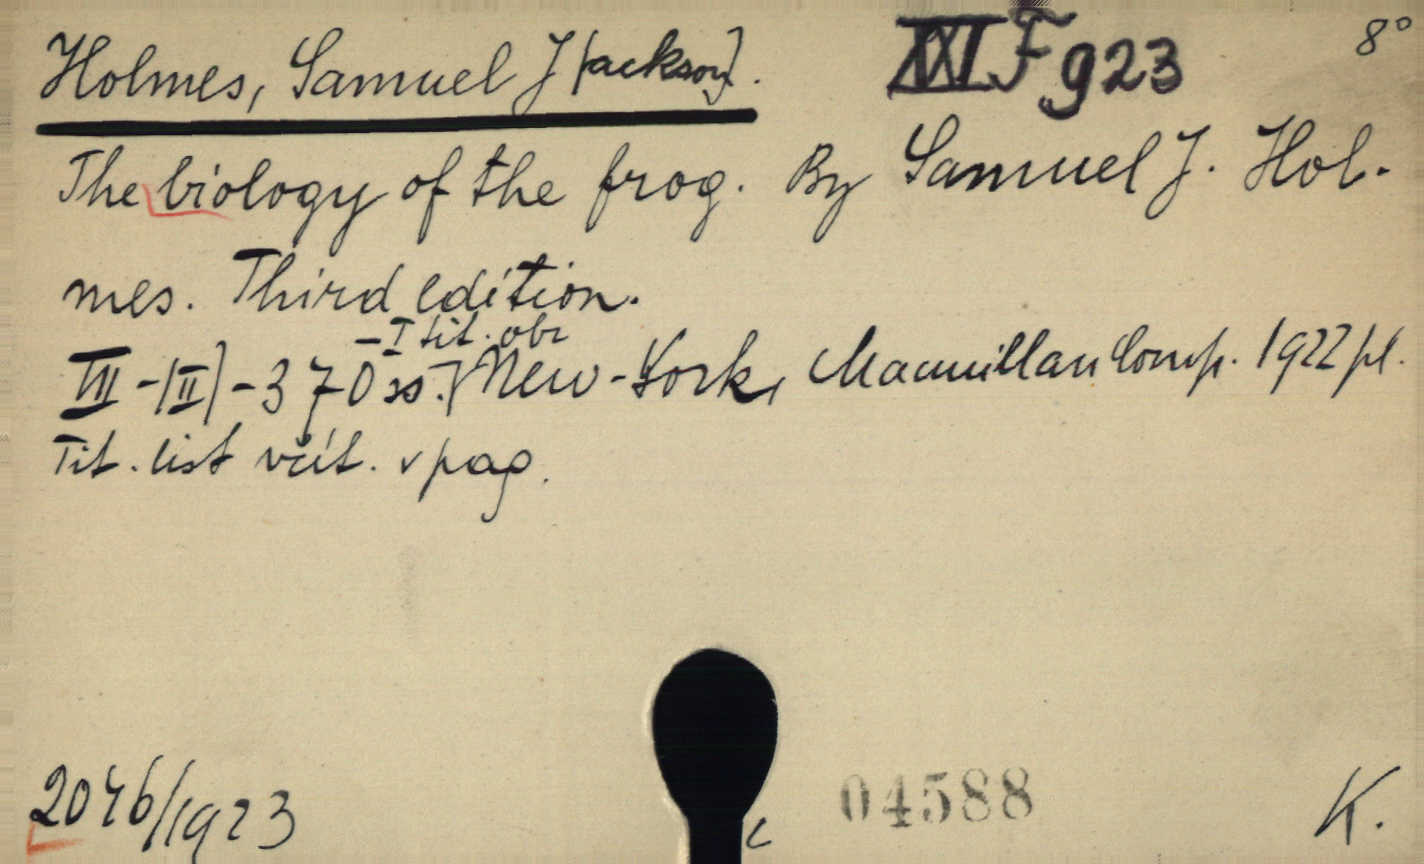 Holmes, Samuel J[ackson]. XXI F 923 8°
The biology of the frog. By Samuel J. Hol-
mes. Third edition.
- I tit. obr
VII-(II)-370 ss.] New-York, Macmillan Comp. 1922 pl.
Tit. list včít. v pag.
2046/1923 04588 K.